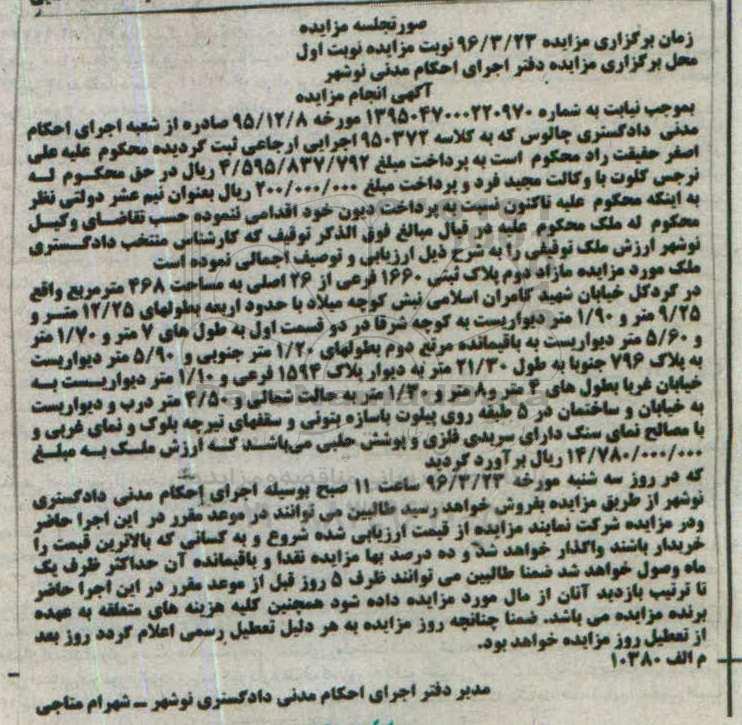 صورتجلسه مزایده
زمان برگزاری مزایده ۹۶/۳/۲۳ نوبت مزایده نوبت اول
محل برگزاری مزایده دفتر اجرای احکام مدنی نوشهر
آگهی انجام مزایده
بموجب نیابت به شماره ۱۳۹۵۰۴۷۰۰۰۲۲۰۹۷۰ مورخه ۹۵/۱۲/۸ صادره از شعبه اجرای احکام
مدنی دادگستری چالوس که به کلاسه ۹۵۰۳۷۲ اجرایی ارجاعی ثبت گردیده محکوم علیه علی
اصغر حقیقت راد محکوم است به پرداخت مبلغ ۴/۵۹۵/۸۳۷/۷۹۲ ریال در حق محکوم له
نرجس گلوت با وکالت مجید فرد و پرداخت مبلغ ۲۰۰/۰۰۰/۰۰۰ ریال بعنوان نیم عشر دولتی نظر
به اینکه محکوم علیه تاکنون نسبت به پرداخت دیون خود اقدامی ننموده حسب تقاضای وکیل
محکوم له ملک محکوم علیه در قبال مبالغ فوق الذکر توقیف که کارشناس منتخب دادگستری
نوشهر ارزش ملک توقیفی را به شرح ذیل ارزیابی و توصیف اجمالی نموده است
ملک مورد مزایده مازاد دوم پلاک ثبتی ۱۶۶۰ فرعی از ۲۶ اصلی به مساحت ۴۶۸ مترمربع واقع
در گردکل خیابان شهید کامران اسلامی نبش کوچه میلاد با حدود اربعه بطولهای ۱۲/۲۵ متر و
۹/۲۵ متر و ۱/۹۰ متر دیواریست به کوچه شرقا در دو قسمت اول به طول های ۷ متر و ۱/۷۰ متر
و ۵/۶۰ متر دیواریست به باقیمانده مرتع دوم بطولهای ۱/۲۰ متر جنوبی و ۵/۹۰ متر دیواریست
به پلاک ۷۹۶ جنوبا به طول ۲۱/۳۰ متر به دیوار پلاک ۱۵۹۴ فرعی و ۱/۱۰ متر دیواریست به
خیابان غربا بطول های ۴ متر و ۸ متر و ۱/۳۰ متر به حالت شمالی و ۴/۵۰ متر درب و دیواریست
به خیابان و ساختمان در ۵ طبقه روی پیلوت باسازه بتونی و سقفهای تیرچه بلوک و نمای غربی و
با مصالح نمای سنگ دارای سربندی فلزی و پوشش حلبی می‌باشد که ارزش ملک به مبلغ
۱۴/۷۸۰/۰۰۰/۰۰۰ ریال برآورد گردید
که در روز سه شنبه مورخه ۹۶/۳/۲۳ ساعت ۱۱ صبح بوسیله اجرای احکام مدنی دادگستری
نوشهر از طریق مزایده بفروش خواهد رسید طالبین می توانند در موعد مقرر در این اجرا حاضر
ودر مزایده شرکت نمایند مزایده از قیمت ارزیابی شده شروع و به کسانی که بالاترین قیمت را
خریدار باشند واگذار خواهد شد و ده درصد بها مزایده نقدا و باقیمانده آن حداکثر ظرف یک
ماه وصول خواهد شد ضمنا طالبین می توانند ظرف ۵ روز قبل از موعد مقرر در این اجرا حاضر
تا ترتیب بازدید آنان از مال مورد مزایده داده شود همچنین کلیه هزینه های متعلقه به عهده
برنده مزایده می باشد. ضمنا چنانچه روز مزایده به هر دلیل تعطیل رسمی اعلام گردد روز بعد
از تعطیل روز مزایده خواهد بود.
م الف ۱۰۳۸۰
مدیر دفتر اجرای احکام مدنی دادگستری نوشهر ــ شهرام متاجی